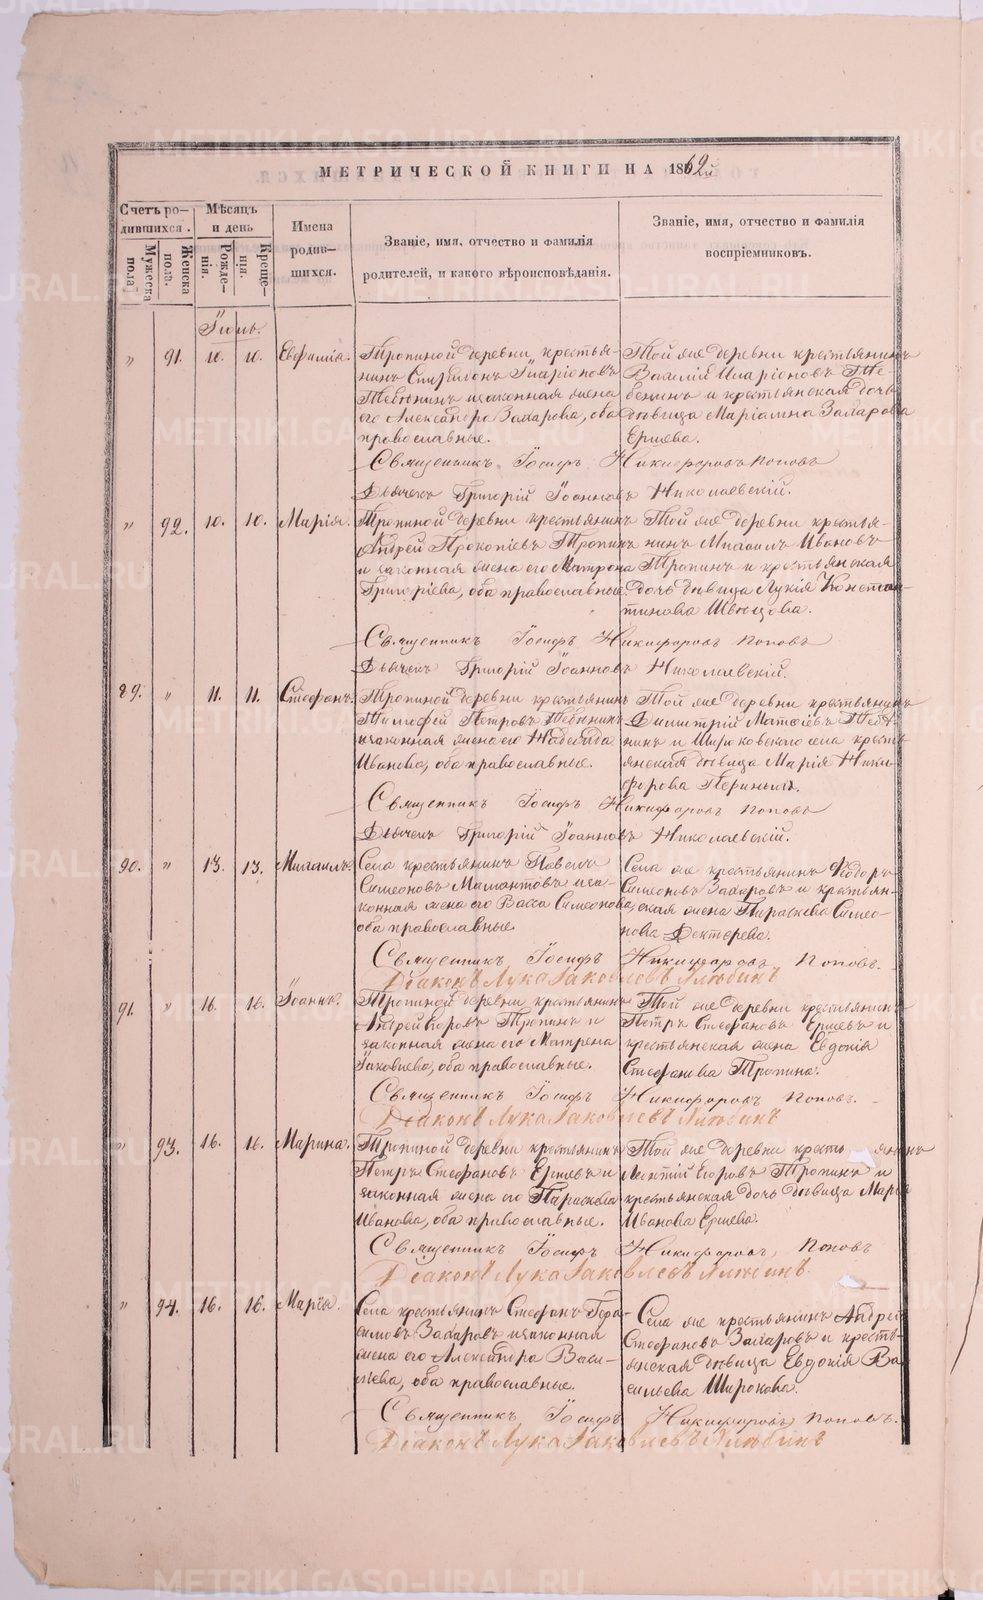 МЕТРИЧЕСКОЙ КНИГИ НА 1862й
Счетъ ро-
дившихся.
Мѣсяцъ
и день
Мужеска
пола.
Женска
пола.
Рожде-
нія.
Креще-
нія.
Имена
родив-
шихся.
Званіе, имя, отчество и фамилія
родителей, и какого вѣроисповѣданія.
Званіе, имя, отчество и фамилія
воспріемниковъ.
Іюнь.
" 91. 10. 10. Евфимія. Тропиной деревни крестья- Той же деревни крестьянинъ
нинъ Спиридонъ Иларіоновъ Василій Иларіоновъ
и законная жена бенинъ и крестьянская дочь
его Александра Захарова, оба дѣвица Маріамна Захарова
православные. Ершева.
Священникъ Іосифъ Никифоровъ Поповъ
Дьячекъ Григорій Іоанновъ Николаевскій.
" 92. 10. 10. Марія. Тропиной деревни крестьянинъ Той же деревни крестья-
Андрей Прокопіевъ Тропинъ нинъ Михаилъ Ивановъ
и законная жена его Матрона Тропинъ и крестьянская
Григоріева, оба православные. дочь дѣвица Лукія Констан-
тинова Швецова.
Священникъ Іосифъ Никифоровъ Поповъ
Дьячекъ Григорій Іоанновъ Николаевскій.
89. " 11. 11. Стефанъ. Тропиной деревни крестьянинъ Той же деревни крестьянинъ
Тимофей Петровъ Димитрій Матѳіевъ
и законная жена его Надежда нинъ и Широковскаго села кресть-
Иванова, оба православные. янская дѣвица Марія Ники-
форова
Священникъ Іосифъ Никифоровъ Поповъ
Дьячекъ Григорій Іоанновъ Николаевскій.
90. " 13. 13. Михаилъ. Села крестьянинъ Павелъ Села же крестьянинъ Ѳеодоръ
Симеоновъ Мамонтовъ и за- Симеоновъ Захаровъ и крестьян-
конная жена его Васса Симеонова, ская жена Параскева Симео-
оба православные. нова Дектерева.
Священникъ Іосифъ Никифоровъ Поповъ.
Діаконъ Лука Іаковлевъ Хлыбинъ
91. " 16. 16. Іоаннъ. Тропиной деревни крестьянинъ Той же деревни крестьянинъ
Андрей Егоровъ Тропинъ и Петръ Стефановъ Ершевъ и
законная жена его Матрена крестьянская жена Евдокія
Іаковлева, оба православные. Стефанова Тропина.
Священникъ Іосифъ Никифоровъ Поповъ.
Діаконъ Лука Іаковлевъ Хлыбинъ
" 93. 16. 16. Марина. Тропиной деревни крестьянинъ Той же деревни крестьянинъ
Петръ Стефановъ Ершевъ и Егоровъ Тропинъ и
законная жена его Параскева крестьянская дочь дѣвица Марія
Иванова, оба православные. Иванова Ершева.
Священникъ Іосифъ Никифоровъ Поповъ
Діаконъ Лука Іаковлевъ Хлыбинъ.
" 94. 16. 16. Марія. Села крестьянинъ Стефанъ Гера- Села же крестьянинъ Андрей
симовъ Захаровъ и законная Стефановъ Захаровъ и кресть-
жена его Александра Васи- янская дѣвица Евдокія Ва-
льева, оба православные. сильева Широкова.
Священникъ Іосифъ Никифоровъ Поповъ.
Діаконъ Лука Іаковлевъ Хлыбинъ
METRIKI.GASO-URAL.RU